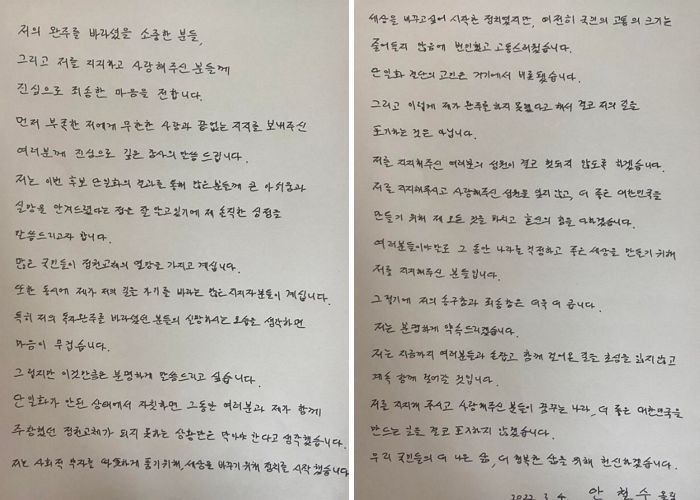 저의 완주를 바라셨을 소중한 분들,
그리고 저를 지지하고 사랑해주신 분들께
진심으로 죄송한 마음을 전합니다.
먼저 부족한 저에게 무한한 사랑과 끝없는 지지를 보내주신
여러분께 진심으로 깊은 감사의 말씀 드립니다.
저는 이번 후보 단일화의 결과를 통해 많은분들께 큰 아쉬움과
실망을 안겨드렸다는 점을 잘 알고있기에 제 솔직한 심정을
말씀드리고자 합니다.
많은 국민들이 정권교체의 열망을 가지고 계십니다.
또한 동시에 제가 저의 길을 가기를 바라는 많은 지지자분들이 계십니다.
특히 저의 독자완주를 바라셨던 분들의 실망하시는 모습을 생각하면
마음이 무겁습니다.
그렇지만 이것만큼은 분명하게 말씀드리고 싶습니다.
단일화가 안된 상태에서 자칫하면 그동안 여러분과 제가 함께
주장했던 정권교체가 되지 못하는 상황만은 막아야 한다고 생각했습니다.
저는 사회적 부자를 따뜻하게 품기위해, 세상을 바꾸기 위해 정치를 시작했습니다
세상을 바꾸고싶어 시작한 정치였지만, 여전히 국민의 고통의 크기는
줄어들지 않음에 번민했고 고통스러웠습니다.
단일화 결단의 고민은 거기에서 비롯됐습니다.
그리고 이렇게 제가 완주를 하지 못했다고 해서 결코 저의 길을
포기하는 것은 아닙니다.
저를 지지해주신 여러분의 성원이 결코 헛되지 않도록 하겠습니다.
저를 지지해주시고 사랑해주신 성원을 잊지 않고, 더 좋은 대한민국을
만들기 위해 제 모든 것을 바치고 혼신의 힘을 다하겠습니다.
여러분들이야말로 그 동안 나라를 걱정하고 좋은 세상을 만들기 위해
저를 지지해주신 분들입니다.
그렇기에 저의 송구함과 죄송함은 더욱 더 큽니다.
저는 분명하게 약속드리겠습니다.
저는 지금까지 여러분들과 손잡고 함께 걸어온 길을 초심을 잃지않고
계속 함께 걸어갈 것입니다.
저를 지지해 주시고 사랑해주신 분들이 꿈꾸는 나라, 더 좋은 대한민국을
만드는 일을 결코 포기하지 않겠습니다.
우리 국민들의 더 나은 삶, 더 행복한 삶을 위해 헌신하겠습니다.
2022. 3. 4 안 철 수 올림